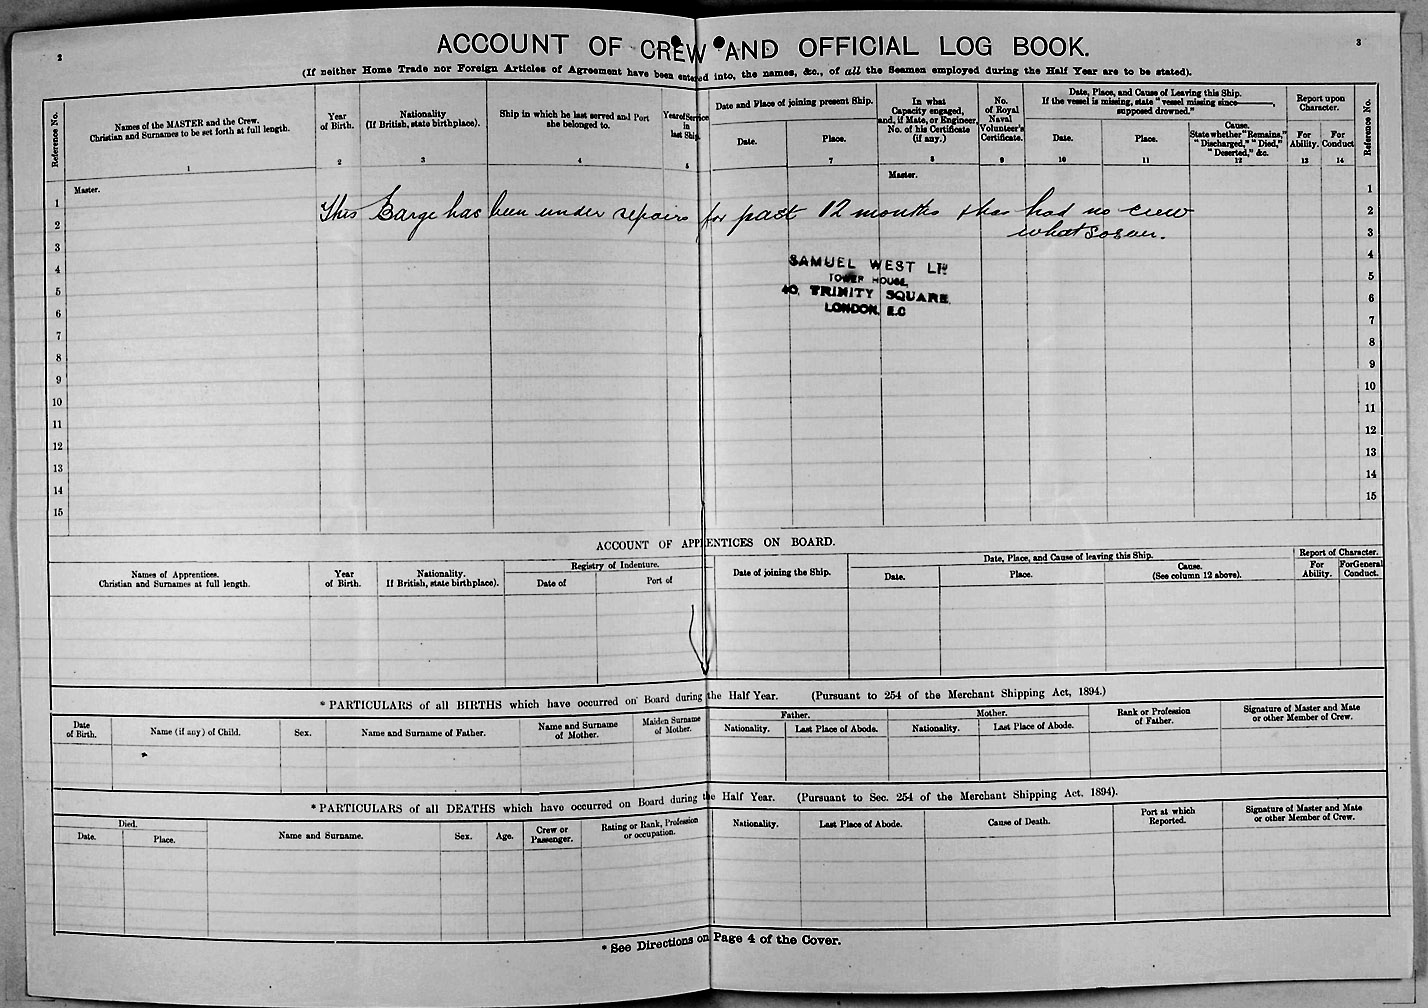 2
3
ACCOUNT OF CREW AND OFFICIAL LOG BOOK.
(If neither Home Trade nor Foreign Articles of Agreement have been entered into, the names, &c., of all the Seamen employed during the Half Year are to be stated).
Reference No.
Names of the MASTER and the Crew.
Christian and Surnames to be set forth at full length.
1
Year
of Birth.
2
Nationality
(If British, state birthplace).
3
Ship in which he last served and Port
she belonged to.
4
Year of Service
in
last Ship.
5
Date and Place of joining present Ship.
Date.
Place.
7
In what
Capacity engaged,
and, if Mate, or Engineer,
No. of his Certificate
(if any.)
8
No.
of Royal
Naval
Volunteer's
Certificate.
9
Date, Place, and Cause of Leaving this Ship.
If the vessel is missing, state "vessel missing since———,
supposed drowned."
Date.
10
Place.
11
Cause.
State whether "Remains,"
"Discharged," "Died,"
"Deserted," &c.
12
Report upon
Character.
For
Ability.
13
For
Conduct
14
Reference No.
Master.
Master.
1
1
This Barge has been under repairs for past 12 months & has had no crew
2
2
whatsoever.
3
3
4
4
SAMUEL WEST LTD
TOWER HOUSE,
40, TRINITY SQUARE,
LONDON, E.C
5
5
6
6
7
7
8
8
9
9
10
10
11
11
12
12
13
13
14
14
15
15
ACCOUNT OF APPRENTICES ON BOARD.
Names of Apprentices.
Christian and Surnames at full length.
Year
of Birth.
Nationality.
If British, state birthplace).
Registry of Indenture.
Date of
Port of
Date of joining the Ship.
Date, Place, and Cause of leaving this Ship.
Date.
Place.
Cause.
(See column 12 above).
Report of Character.
For
Ability.
For General
Conduct.
* PARTICULARS of all BIRTHS which have occurred on Board during the Half Year. (Pursuant to 254 of the Merchant Shipping Act, 1894.)
Date
of Birth.
Name (if any) of Child.
Sex.
Name and Surname of Father.
Name and Surname
of Mother.
Maiden Surname
of Mother.
Father.
Nationality.
Last Place of Abode.
Mother.
Nationality.
Last Place of Abode.
Rank or Profession
of Father.
Signature of Master and Mate
or other Member of Crew.
* PARTICULARS of all DEATHS which have occurred on Board during the Half Year. (Pursuant to Sec. 254 of the Merchant Shipping Act, 1894).
Died.
Date.
Place.
Name and Surname.
Sex.
Age.
Crew or
Passenger.
Rating or Rank, Profession
or occupation.
Nationality.
Last Place of Abode.
Cause of Death.
Port at which
Reported.
Signature of Master and Mate
or other Member of Crew.
* See Directions on Page 4 of the Cover.